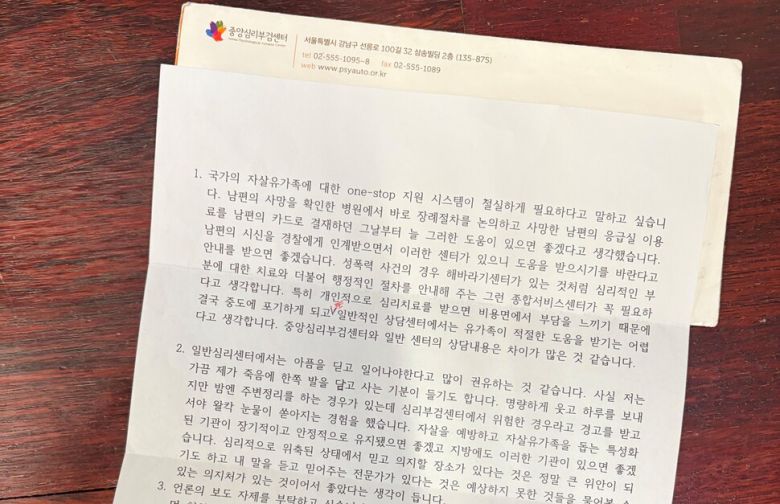 중앙심리부검센터
서울특별시 강남구 선릉로 100길 32 삼송빌딩 2층 (135-875)
tel 02-555-1095~8 fax 02-555-1089
web www.psyauto.or.kr
1. 국가의 자살유가족에 대한 one-stop 지원 시스템이 절실하게 필요하다고 말하고 싶습니
다. 남편의 사망을 확인한 병원에서 바로 장례절차를 논의하고 사망한 남편의 응급실 이용
료를 남편의 카드로 결재하던 그날부터 늘 그러한 도움이 있으면 좋겠다고 생각했습니다.
남편의 시신을 경찰에게 인계받으면서 이러한 센터가 있으니 도움을 받으시기를 바란다고
안내를 받으면 좋겠습니다. 성폭력 사건의 경우 해바라기센터가 있는 것처럼 심리적인 부
분에 대한 치료와 더불어 행정적인 절차를 안내해 주는 그런 종합서비스센터가 꼭 필요하
다고 생각합니다. 특히 개인적으로 심리치료를 받으면 비용면에서 부담을 느끼기 때문에
결국 중도에 포기하게 되고 일반적인 상담센터에서는 유가족이 적절한 도움을 받기는 어렵
다고 생각합니다. 중앙심리부검센터와 일반 센터의 상담내용은 차이가 많은 것 같습니다.
2. 일반심리센터에서는 아픔을 딛고 일어나야한다고 많이 권유하는 것 같습니다. 사실 저는
가끔 제가 죽음에 한쪽 발을 담고 사는 기분이 들기도 합니다. 명랑하게 웃고 하루를 보내
지만 밤엔 주변정리를 하는 경우가 있는데 심리부검센터에서 위험한 경우라고 경고를 받고
서야 왈칵 눈물이 쏟아지는 경험을 했습니다. 자살을 예방하고 자살유가족을 돕는 특성화
된 기관이 장기적이고 안정적으로 유지됐으면 좋겠고 지방에도 이러한 기관이 있으면 좋겠
습니다. 심리적으로 위축된 상태에서 믿고 의지할 장소가 있다는 것은 정말 큰 위안이 되
기도 하고 내 말을 듣고 믿어주는 전문가가 있다는 것은 예상하지 못한 것들을 물어볼 수
있는 의지처가 있는 것이어서 좋았다는 생각이 듭니다.
3. 언론의 보도 자제를 부탁하고